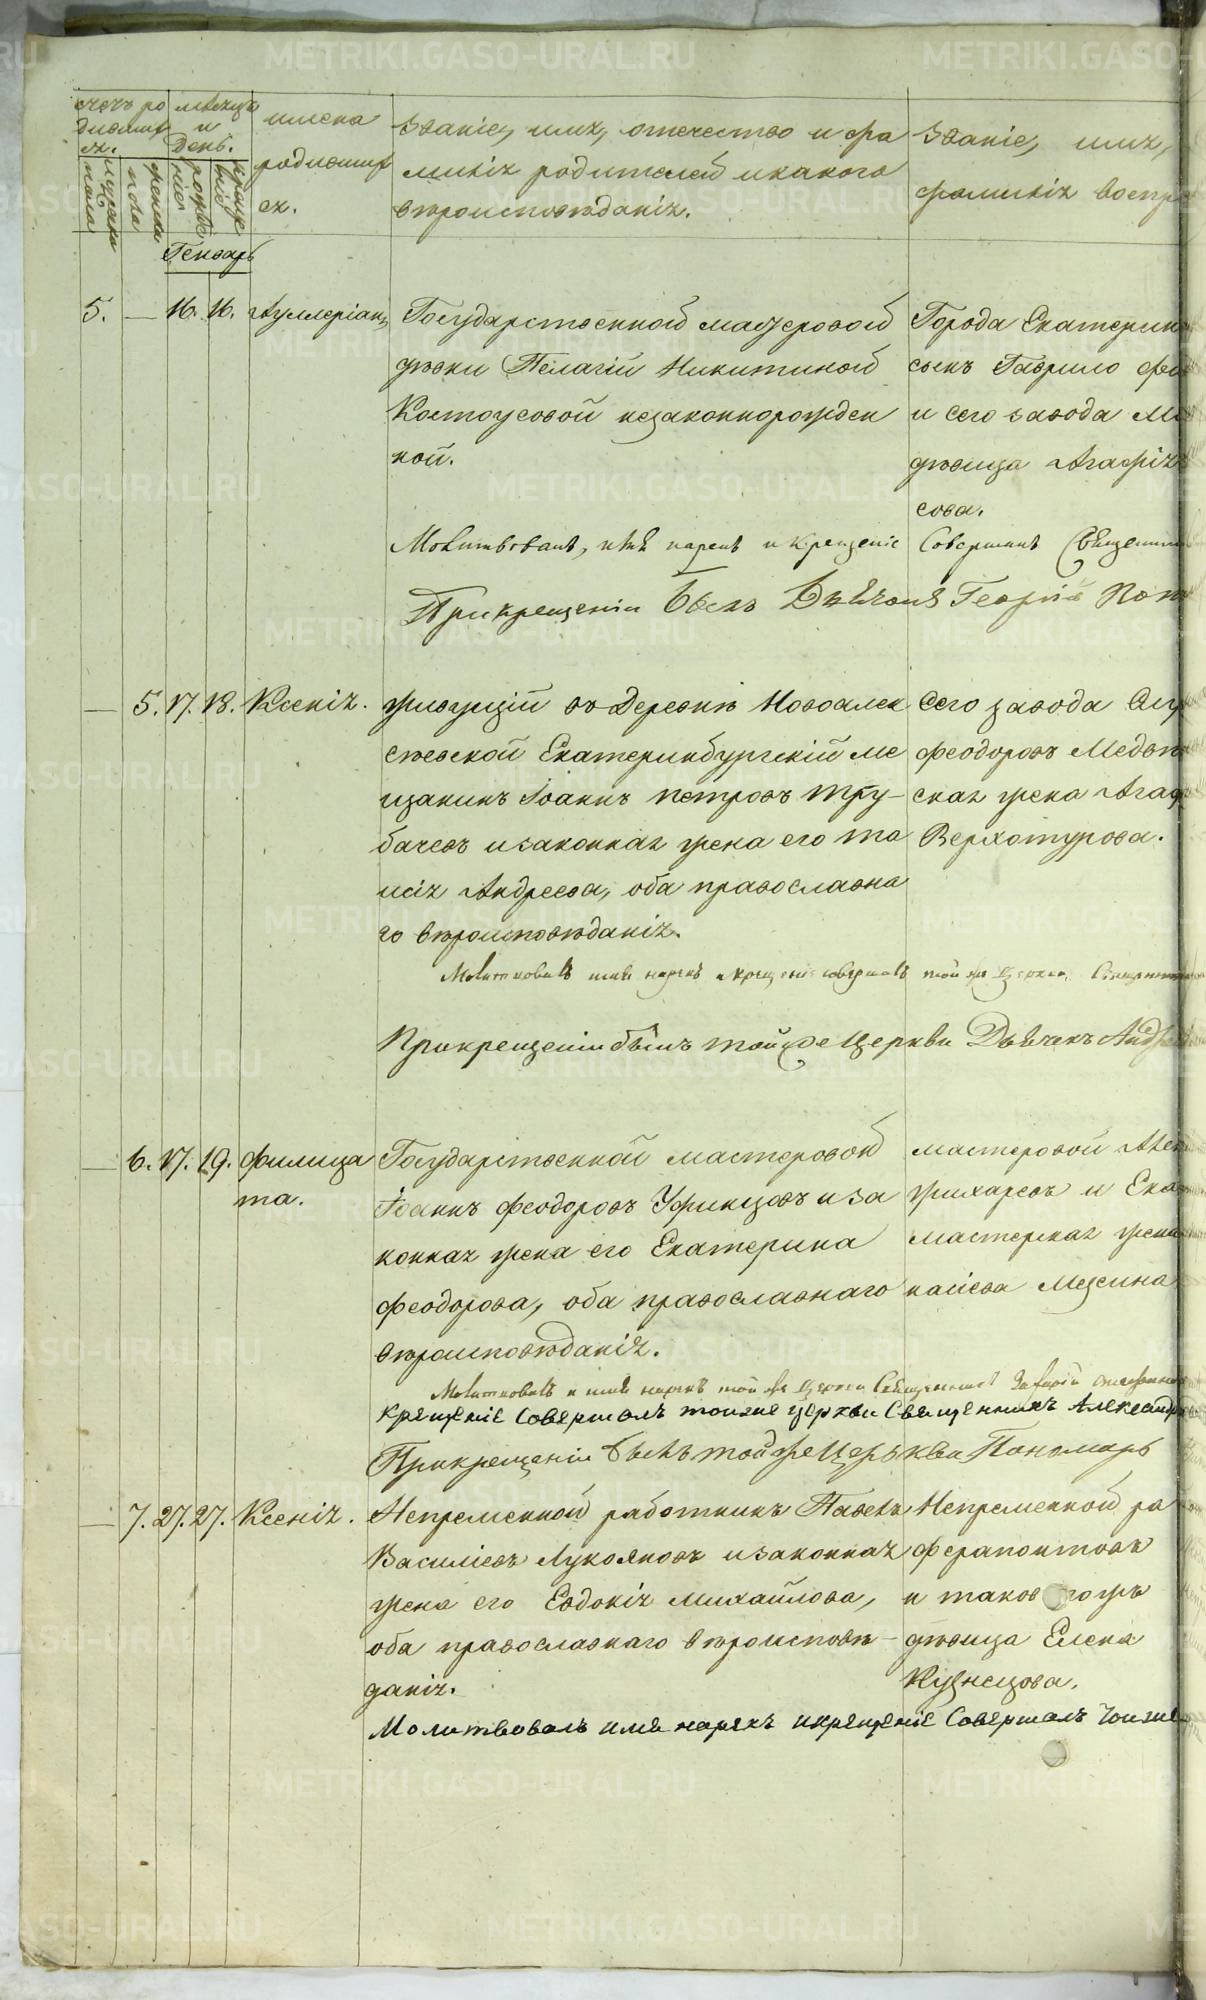 счетъ ро
дившиг
ся.
мѣсяцъ
и
день.
имена
родившиг
ся.
званіе, имя, отечество и фа
миліи родителей и какого
вѣроисповѣданія.
званіе, имя,
фамилія воспр
мужска
пола
женска
пола
рожде
нія
креще
нія
Генварь
5. — 16. 16.
Государственной мастеровой
дѣвки Пелагіи Никитиной
Костоусовой незаконнорожден
ной.
Города Екатерин
сынъ Гаврило
и сего завода
дѣвица Агафія
сова.
Молитвовалъ, имя нарекъ и крещеніе Совершилъ Священник
При крещеніи былъ Дьячокъ Георгій Пон
— 5. 17. 18. Ксенія.
живущій въ Деревнѣ Новоалек
сѣевской Екатеринбургскій ме
щанинъ Іоаннъ Петровъ Тру-
бачевъ и законная жена его Та
исія Андреева, оба православна
го вѣроисповѣданія.
Сего завода
Феодоровъ Медвѣ
ская жена Агаф
Верхотурова.
Молитвовалъ имя нарекъ и крещеніе совершалъ той же Церкви Священник
При крещеніи былъ той же Церкви Дьячекъ Андрей
— 6. 17. 19. Филица
та.
Государственной мастеровой
Іоаннъ Феодоровъ Уфинцовъ и за
конная жена его Екатерина
Феодорова, оба православнаго
вѣроисповѣданія.
мастеровой
Жихаревъ и Ека
мастерская жена
Молитвовалъ и имя нарекъ той же Церкви Священникъ
крещеніе совершалъ тоиже церкви Священникъ Александр
При крещеніи былъ той же Церькви Пономарь
— 7. 27. 27. Ксенія.
Непременной работникъ Павелъ
Василіевъ Лукояновъ и законная
жена его Евдокія Михайлова,
оба православнаго вѣроисповѣ-
данія.
Непременной ра
Ферапонтовъ
и таковогожъ
дѣвица Елена
Кузнецова.
Молитвовалъ имя нарекъ и крещеніе Совершалъ тоиже
METRIKI.GASO-URAL.RU